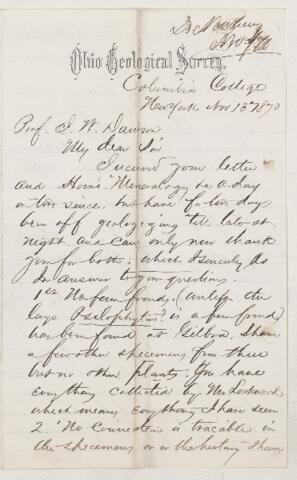 Dr Newberry
Nov
Ohio Geological Survey
Columbia College
New York Nov 13 1870
Prof. J. W. Dawson
My dear Sir
I received your letter
and Mineralogy &c a day
or two since. but have for two days
been off geologizing till late at
night, and can only now thank
you for both: which I sincerely do
In answer to your questions.
1st No fern fronds, (unless the
Psilophyton? is a fern frond)
has been found at Gilboa. I have
a few other specimens from there
but no other plants. You have
everything collected by Mr Lockwood
which means everything I have seen
2. No connection is traceable in
the specimens or in the history I have